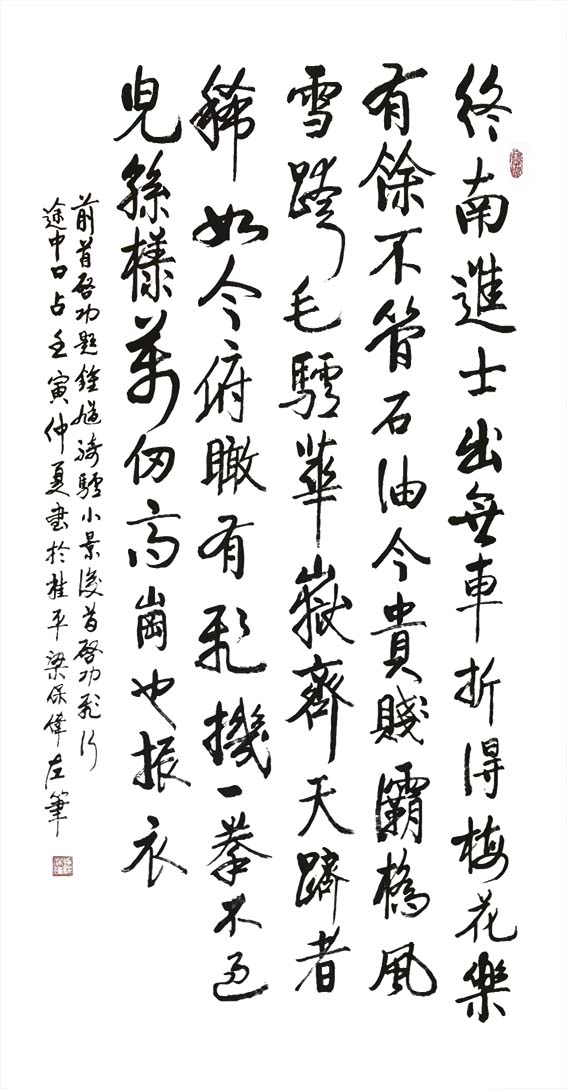 終南進士出無車折得梅花樂
有餘不管石油今貴賤灞橋風
雪跨毛驢華嶽齊天躋者
稀如今俯瞰有飛機一拳不過
兒孫樣萬仞高崗也振衣
前首啓功題鍾馗騎驢小景後首啓功飛行
途中口占壬寅仲夏書於桂平梁保偉左筆